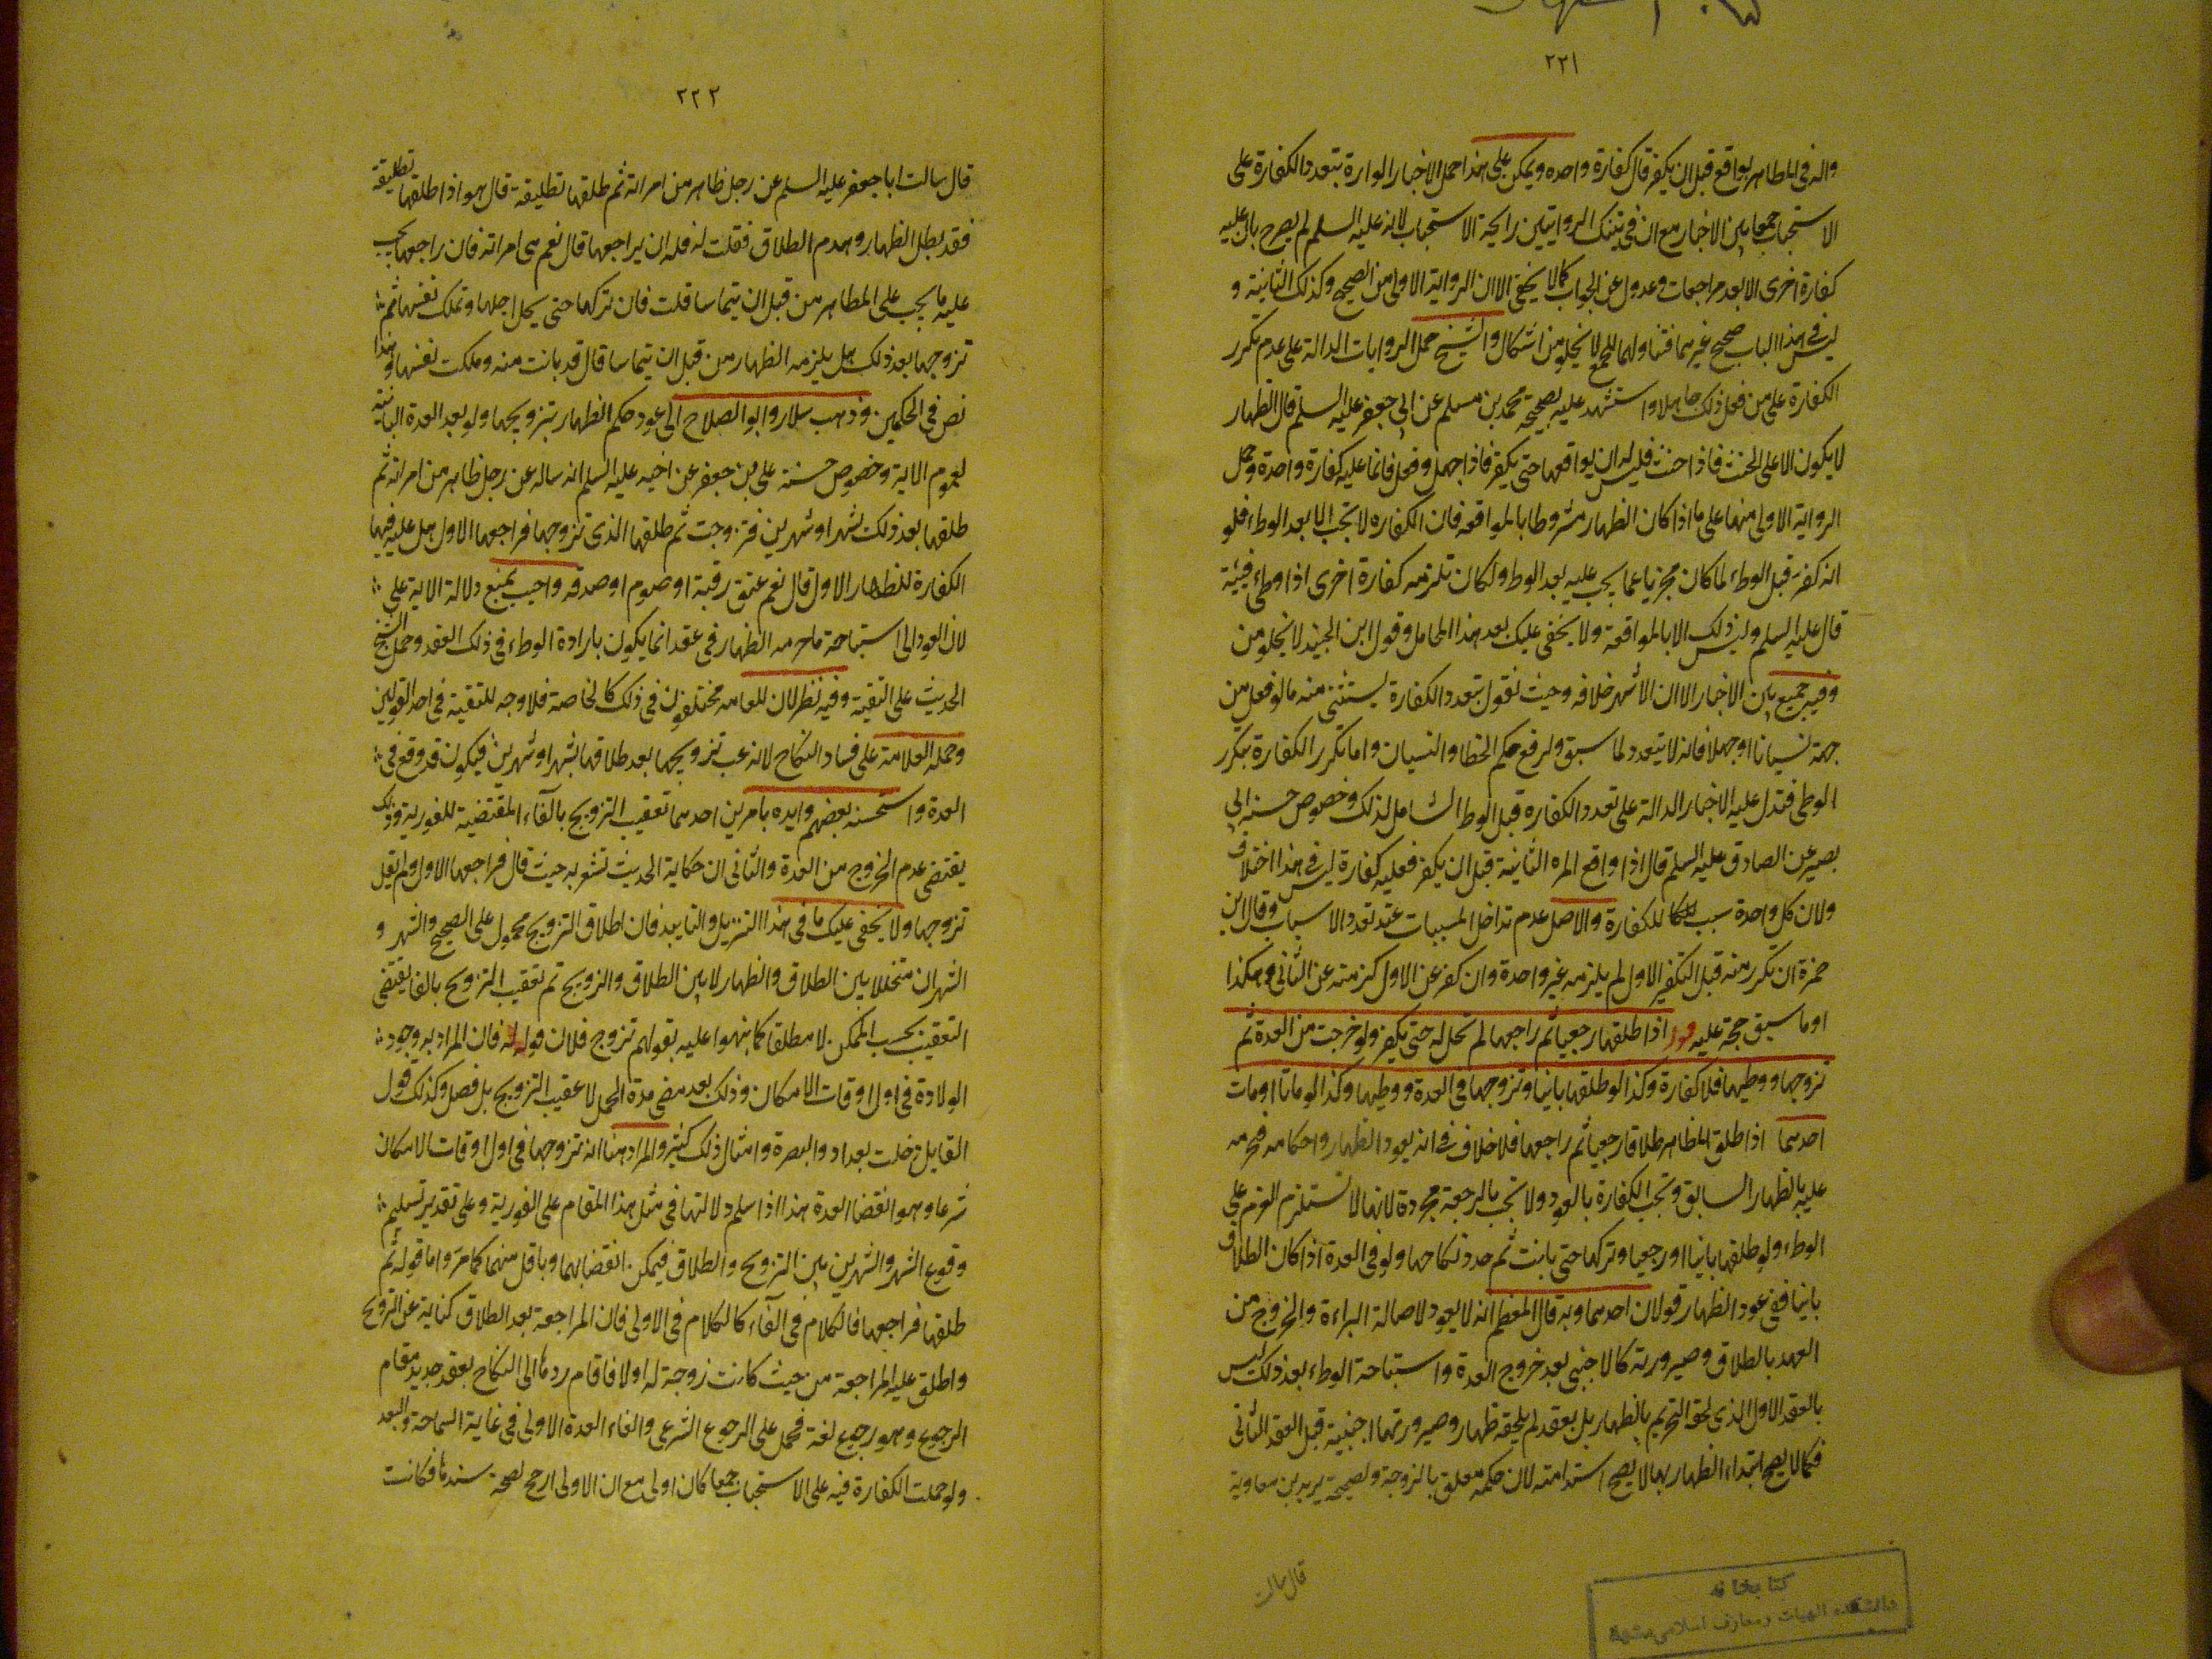 ٢٢١
واله فى المظاهر يواقع قبل ان يكفر قال كفارة واحده ويمكن على هذا حمل الاخبار الوارة بتعدد الكفارة على
الاستحباب جمعا بين الاخبار مع ان فى تينك الروايتين رايحة الاستحباب لانه عليه السلم لم يصرح بان عليه
كفارة اخرى الا بعد مراجعات وعدول عن الجواب كما لا يخفى الا ان الرواية الاولى من الصحيح وكذلك الثانية و
ليس فى هذا الباب صحيح غيرهما فتناولهما للجمع لا يخلو من اشكال والشيخ حمل الروايات الدالة على عدم تكرر
الكفارة على من فعل ذلك جاهلا واستشهد عليه بصحيحة محمد بن مسلم عن ابى جعفر عليه السلم قال الظهار
لا يكون الا على الحنث فاذا حنث فليس له ان يواقعها حتى يكفر فاذا جهل وفعل فانما عليه كفارة واحدة وحمل
الرواية الاولى منها على ما اذا كان الظهار مشروطا بالمواقعة فان الكفاره لا تجب الا بعد الوطء فلو
انه كفر قبل الوطء لما كان مجزيا عما يجب عليه بعد الوطء ولكان تلزمه كفارة اخرى اذا وطىء
قال عليه السلم وليس ذلك الا بالمواقعة ولا يخفى عليك بعد هذا المحامل وقول ابن الجنيد لا يخلو من
وفيه جميع بين الاخبار الا ان الاشهر خلافه وحيث نقول بتعدد الكفارة يستثنى منه ما لو فعل من
جهة نسيانا او جهلا فانه لا يتعدد لما سبق ولرفع حكم الخطا والنسيان واما تكرر الكفارة بتكرر
الوطى فتدل عليه الاخبار الدالة على تعدد الكفاره قبل الوطء الشامل لذلك وخصوص حسنة ابى
بصير عن الصادق عليه السلم قال اذا واقع المره الثانية قبل ان يكفر فعليه كفارة ليس فى هذا اختلاف
ولان كل واحدة سبب للكفارة والاصل عدم تداخل المسببات عند تعدد الاسباب وقال ابن
حمزة ان تكرر منه قبل التكفير الاول لم يلزمه غير واحدة وان كفر عن الاول لزمته عن الثانى وهكذا
او ما سبق حجة عليه قوله اذا طلقها رجعيا ثم راجعها لم تحل له حتى يكفر ولو خرجت من العدة ثم
تزوجها ووطيها فلا كفارة وكذا لو طلقها باينا وتزوجها فى العدة ووطيها وكذا لو ماتا او مات
احدهما اذا طلق المظاهر طلاقا رجعيا ثم راجعها فلا خلاف فى انه يعود الظهار واحكامه فتحرمه
عليه بالظهار السابق وتجب الكفارة بالعود ولا تجب بالرجعة مجردة لانها لا تستلزم العزم على
الوطء ولو طلقها باينا او رجعيا وتركها حتى بانت ثم جدد نكاحها ولو فى العدة اذا كان الطلاق
باينا ففى عود الظهار قولان احدهما وبه قال المعظم انه لا يعود لاصالة البراءة والخروج من
العهد بالطلاق وصيرورته كالاجنبى بعد خروج العدة واستباحة الوطء بعد ذلك ليس
بالعقد الاول الذى لحقه التحريم بالظهار بل بعقد لم يلحقه ظهار وصيرورتها اجنبية قبل العقد الثانى
فكما لا يصح ابتداء الظهار بها لا يصح استدامته لان حكمه معلق بالزوجة ولصحيحة يزيد بن معاوية
قال سالت
كتابخانه
دانشكده الهيات ومعارف اسلامى مشهد
٢٢٢
قال سالت ابا جعفر عليه السلم عن رجل ظاهر من امراته ثم طلقها تطليقة قال هو اذا طلقها تطليقة
فقد بطل الظهار وهدم الطلاق فقلت له فله ان يراجعها قال نعم هى امراته فان راجعها يجب
عليه ما يجب على المظاهر من قبل ان يتماسا قلت فان تركها حتى يحل اجلها وتملك نفسها ثم
تزوجها بعد ذلك هل يلزمه الظهار من قبل ان يتماسا قال قد بانت منه وملكت نفسها وهذا
نص فى الحكمين وذهب سلار وابو الصلاح الى عود حكم الظهار بتزويجها ولو بعد العدة الباينة
لعموم الاية وخصوص حسنة على بن جعفر عن اخيه عليه السلم انه ساله عن رجل ظاهر من امراته ثم
طلقها بعد ذلك بشهر او شهرين فتزوجت ثم طلقها الذى تزوجها فراجعها الاول هل عليه فيها
الكفارة للظهار الاول قال نعم عتق رقبة او صوم او صدقه واجيب بمنع دلالة الاية على
لان العود الى استباحة ما حرمه الظهار فى عقد انما يكون بارادة الوطء فى ذلك العقد وحمل الشيخ
الحديث على التقية وفيه نظر لان للعامه مختلفون فى ذلك كالخاصة فلا وجه للتقية فى احد القولين
وحمله العلامة على فساد النكاح لانه عب تزويجها بعد طلاقها بشهر او شهرين فيكون قد وقع فى
العدة واستحسنه بعضهم وايده بامرين احدهما تعقيب التزويج بالفاء المقتضية للفورية وذلك
يقتضى عدم الخروج من العدة والثانى ان حكاية الحديث تشعر به حيث قال فراجعها الاول ولم يقل
تزوجها ولا يخفى عليك ما فى هذا التنزيل والتاييد فان اطلاق التزويج محمول على الصحيح والشهر و
الشهران متخللا بين الطلاق والظهار لا بين الطلاق والتزويج ثم تعقيب التزويج بالفا يقتضى
التعقيب بحسب الممكن لا مطلقا كما نبهوا عليه بقولهم تزوج فلان فولد له فان المراد به وجود
الولادة فى اول اوقات الامكان وذلك بعد مضى مدة الحمل لا عقيب التزويج بل فصل وكذلك قول
القايل دخلت بغداد والبصرة وامثال ذلك كثير والمراد هنا انه تزوجها فى اول اوقات الامكان
شرعا وهو انقضا العدة هذا اذا سلم دلالتها فى مثل هذا المقام على الفورية وعلى تقدير تسليم
وقوع الشهر والشهرين بين التزويج والطلاق فيمكن انقضا بهما وباقل منهما كما مر واما قوله ثم
طلقها فراجعها فالكلام فى الفاء كالكلام فى الاولى فان المراجعة بعد الطلاق كناية عن التزويج
واطلق عليه المراجعة من حيث كانت زوجة له اولا فاقام ردها الى النكاح بعقد جديد مقام
الرجوع وهو رجوع لغة فحمل على الرجوع الشرعى والغاء العدة الاولى فى غاية السماحة والبعد
ولو حملت الكفارة فيه على الاستحباب جمعا كان اولى مع ان الاولى ارجح لصحة سندها فكانت